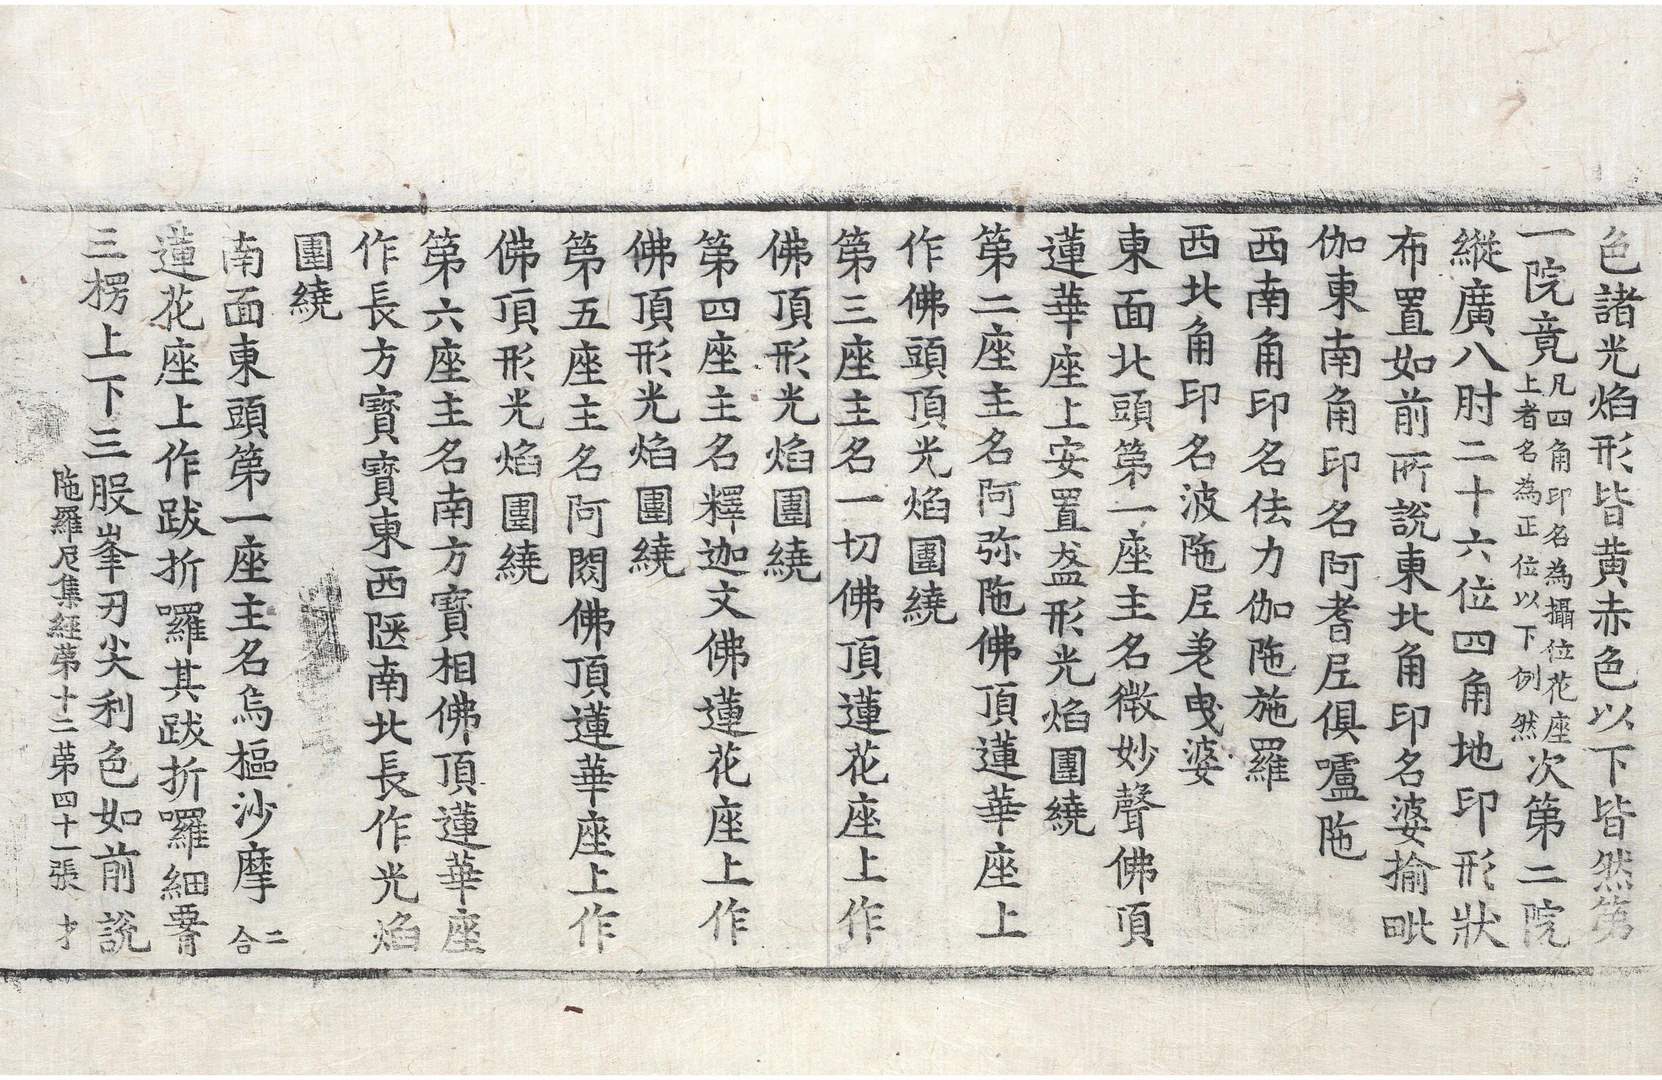 色諸光焰形皆黃赤色以下皆然第
一院竟凡四角印名為攝位花座上者名為正位以下例然次第二院
縱廣八肘二十六位四角地印形狀
布置如前所說東北角印名婆揄毗
伽東南角印名阿耆𡰱俱嚧陁
西南角印名佉力伽陁施羅
西北角印名波陁𡰱羗曳婆
東面北頭第一座主名微妙聲佛頂
蓮華座上安置盋形光焰團繞
第二座主名阿弥陁佛頂蓮華座上
作佛頭頂光焰團繞
第三座主名一切佛頂蓮花座上作
佛頂形光焰團繞
第四座主名釋迦文佛蓮花座上作
佛頂形光焰團繞
第五座主名阿閦佛頂蓮華座上作
佛頂形光焰團繞
第六座主名南方寶相佛頂蓮華座
作長方寶寶東西陿南北長作光焰
團繞
南面東頭第一座主名烏樞沙摩二合
蓮花座上作跋折囉其跋折囉細腰
三楞上下三股峯刃尖利色如前說
陁羅𡰱集經第十二第四十一張 才